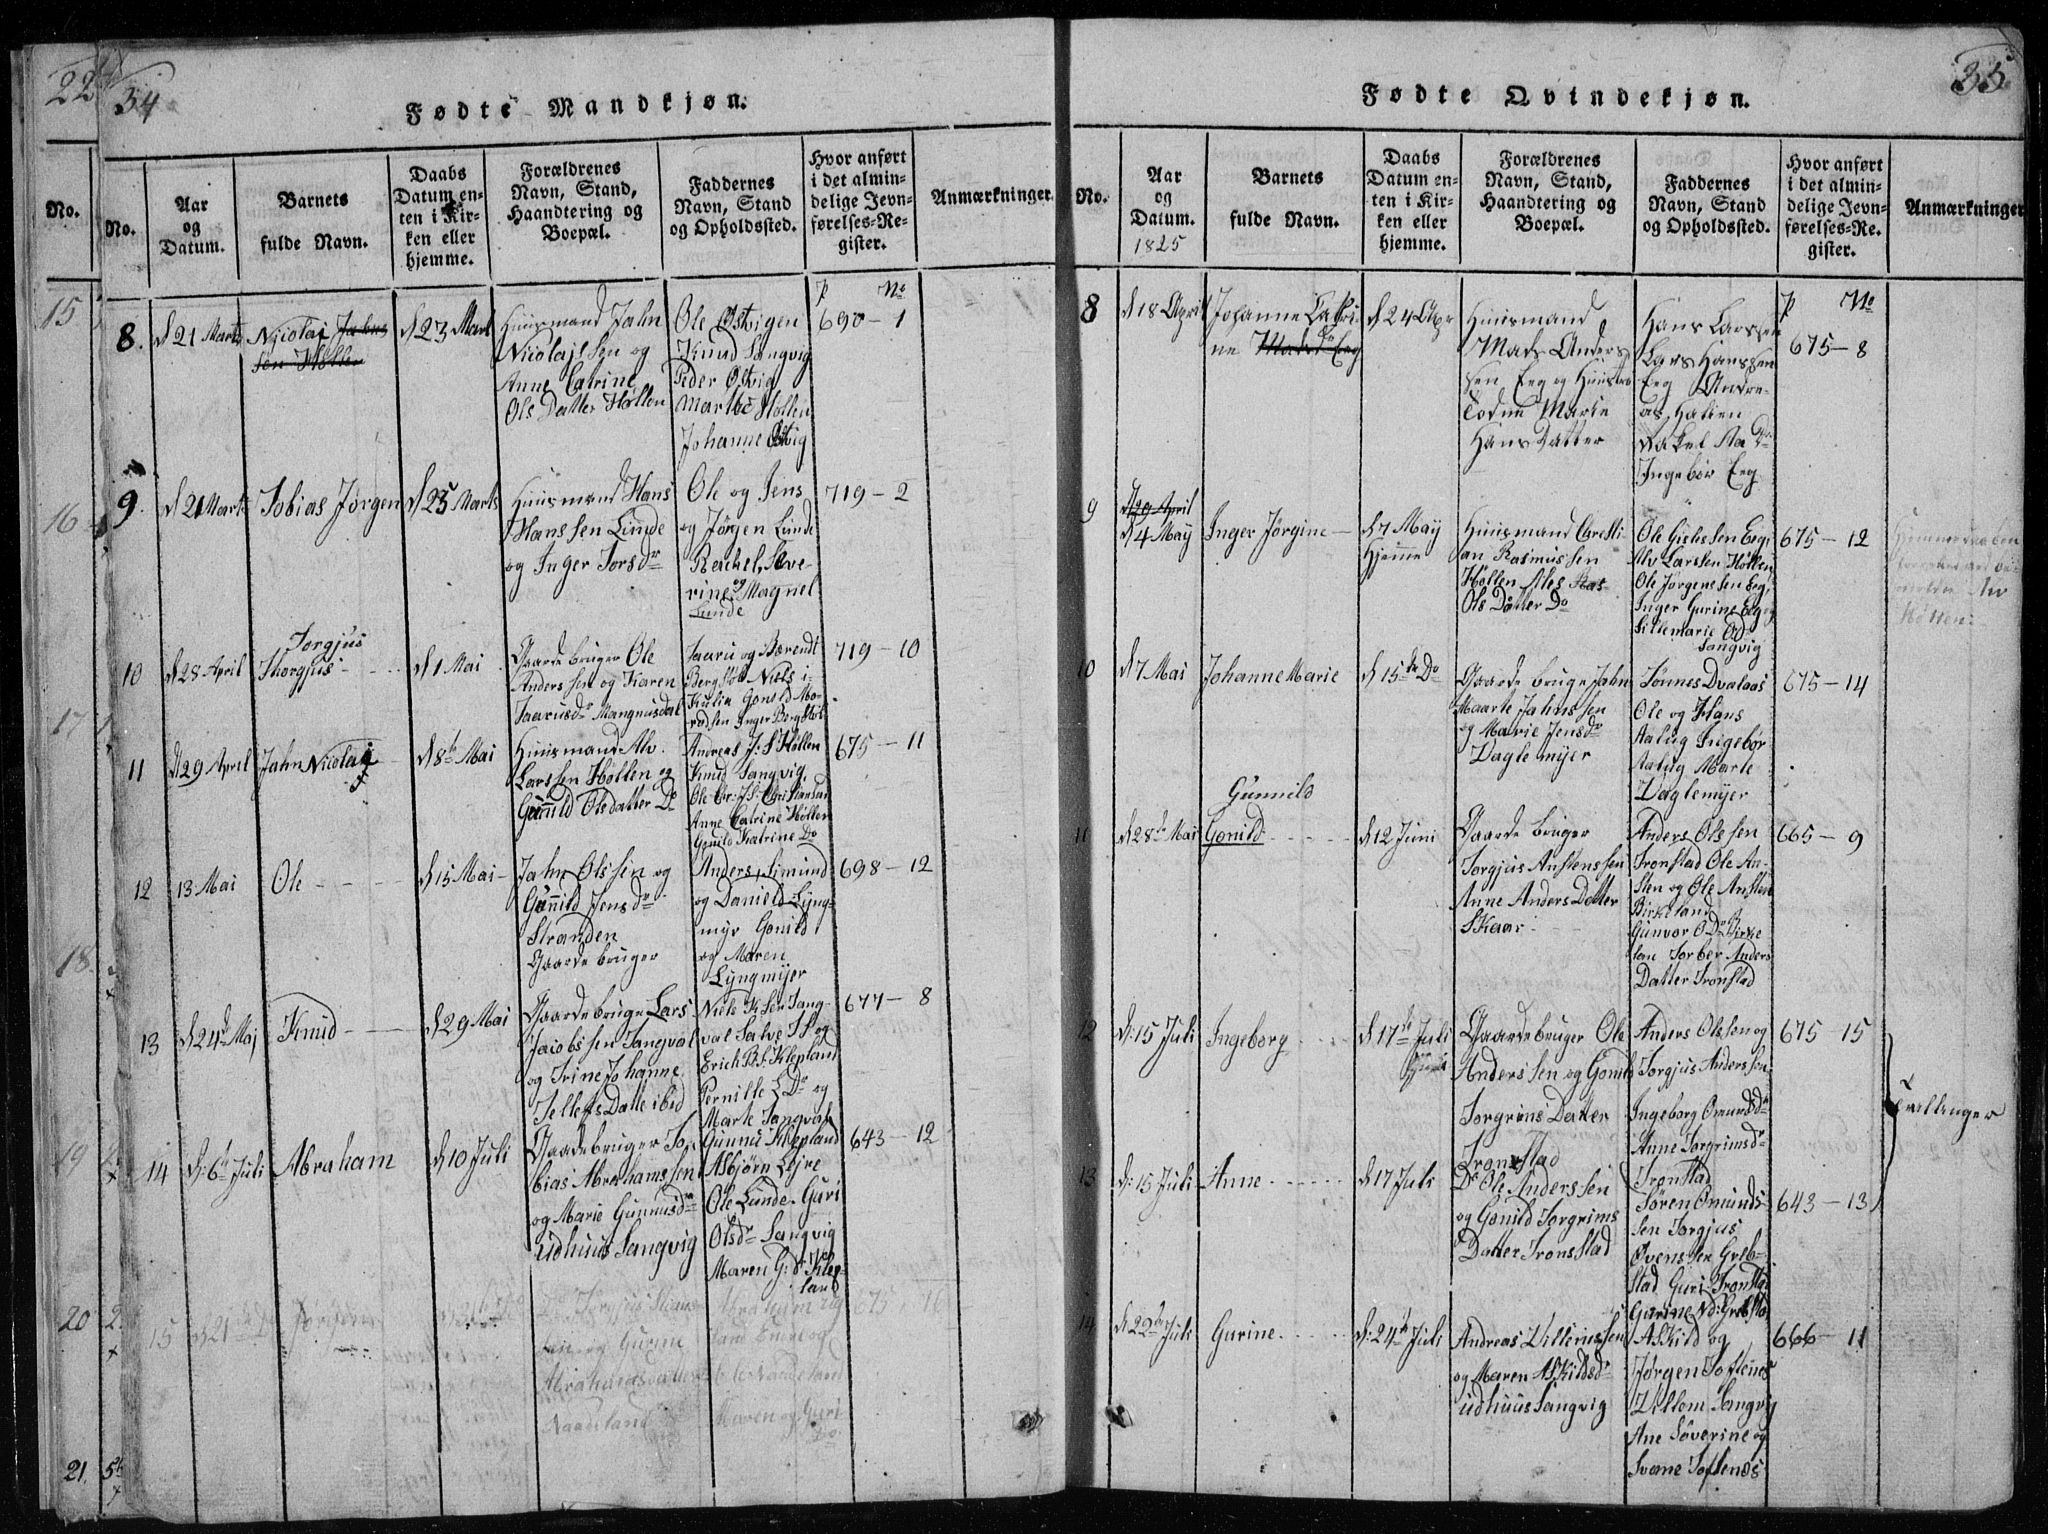 22
34
Fødte Mandkjøn.
No.
No.
Aar
og
Datum.
Barnets
fulde Navn.
Daabs
Datum en-
ten i Kir-
ken eller
hjemme.
Forældrenes
Navn, Stand,
Haandtering og
Boepæl.
Faddernes
Navn, Stand
og Opholdssted.
Hvor anført
i det almin-
delige Jevn-
førelses-Re-
gister.
Anmærkninger.
15
16
17
18
19
20
21
p No
8.
d 21 Marts
Nicolai Jahns
sen Høllen
d 23 Marts
Huusmand Jahn
Nicolajssen og
Anne Catrine
Ols Datter Høllen
Ole Østvigen
Knud Sangvig
Peder Østvig
Marthe Høllen
Johanne Østvig
690 - 1
9.
d 21 Marts
Tobias Jørgen
d 25 Marts
Huusmand Hans
Hanssen Lunde
og Inger Torsdr
Ole og Jens
og Jørgen Lunde
Rachel, Seve-
rine og Magnel
Lunde
719 - 2
10
d 28 April
Torgjus
Thorgjus
d 1 Mai
Gaardebruger Ole
Anderssen og Karen
Taarusdr Mangnusdal
Taaru og Berendt
Bergstøl Niels i-
Kulia Gonild Mo-
Inger Bergstøl
719 - 10
11
d 29 April
Jahn Nicolai
d 8de Mai
Huusmand Alv
Larssen Høllen og
Gunnild Olsdatter Do
Andreas J: S Høllen
Knud Sangvig,
Ole Chr: J. S: Christiansand
Anne Catrine Høllen
Gunild Katrine Do
675 - 11
12
13 Mai
Ole
d 15 Mai
Jahn Olssen og
Gunnild Jensdr
Stranden
Gaardebruger
Anders, Simund
og Daniel Lyng-
myr Gonild
og Maren
Lyngmyer
698 - 12
13
d 24d Maj
Knud
d 29 Mai
Gaardebruge Lars
Jacobssen Sangval
og Trine Johanne
Tellefs Datte ibid
Niels K.sen Sang-
val Salve
Erich B.S. Klepland
Pernille L Dr og
Marte Sangval
677 - 8
14
d: 6te Juli
Abraham
d 10 Juli
Gaardebruger To-
bias Abrahamssen
og Marie Gunnusdr
udhuus Sangvig
Gunnu Klepland
Asbjørn Leire
Ole Lunde. Guri
Olsdr Sangvig
Maren G: dr Klep-
land
643 - 12
15
d 21
Jørgen
Do Torgjus
sen og Gurine
Abrahamsdatter
Naudeland
Abraham
land
Ole Naudeland
Maren og Guri
Do
675 - 16
35.
Fødte Qvindekjøn.
No.
Aar
og
Datum.
1825
Barnets
fulde Navn.
Daabs
Datum en-
ten i Kir-
ken eller
hjemme.
Forældrenes
Navn, Stand,
Haandtering og
Boepæl.
Faddernes
Navn, Stand
og Opholdssted.
Hvor anført
i det almin-
delige Jevn-
førelses-Re-
gister.
Anmærkninger
p No
8
d 18 April
Johanne Catri-
ne Madsdr Eeg
d 24 Apr
Huusmand
Mads Anders
sen Eeg og Huustro
Todne Marie
Hans Datter
Hans Larssen
Lars Hanssen
Eeg Andre-
as Halien
Rakel Aa Dr
Ingebor Eeg
675 - 8
9
d 29 April
d 4 Maÿ
Inger Jørgine
d 7 Maÿ
Hjemme
Huusmand Christi-
an Rasmussen
Høllen Ales
Ols Datter Do
Ole Gislessen Eeg,
Alv Larssen Høllen,
Ole Jørgenssen Eeg,
Inger Gurine Eeg
Sillemarie Od
Sangvig
675 - 12
Hjemmedaaben
Høllen
10
d 7 Mai
Johanne Marie
d 15de Do
Gaardebruge Jahn
Maarte Jahnssen
og Marie Jensdr
Daglemyer
Tønnes Dvalaas
Ole og Hans
Aalug Ingebor
Aalug Marte
Daglemyer
675 - 14
11
d 28de Mai
Gunnild
Gonild
d 12 Juni
Gaardebruger
Torgjus Anstenssen
Anne Anders Datter
Skaar
Anders Olssen
Tronstad Ole An-
sten og Ole Ansten
Birkeland
Gunvor O Dr Birke
lan Torber Anders
Datter Tronstad
665 - 9
12
d: 15 Juli
Ingeborg
d 17de Juli
Gaardebruger Ole
Anderssen og Gonild
Torgrims Datter
Tronstad
Anders Olssen og
Torgjus Anderssen
Ingeborg Omundsdr
Anne Torgrimsdr
Tronstad
675 15
Tvillinger
13
d: 15 Juli
Anne
d 17 Juli
Do Ole Anderssen
og Gonild Torgrims
Datter Tronstad
Søren Omunds
sen Torgjus
Ovenssen Greb-
stad Guri Tronsta
Gurine Nd: Grebsta
643 - 13
14
d 22de Juli
Gurine
d: 24de Juli
Andreas Villumssen
og Maren Askildsdr
udhuus Sangvig
Askild og
Jørgen Toftenes
Villom Sangvig
Ane Søverine og
Svane Toftenes
666 - 11